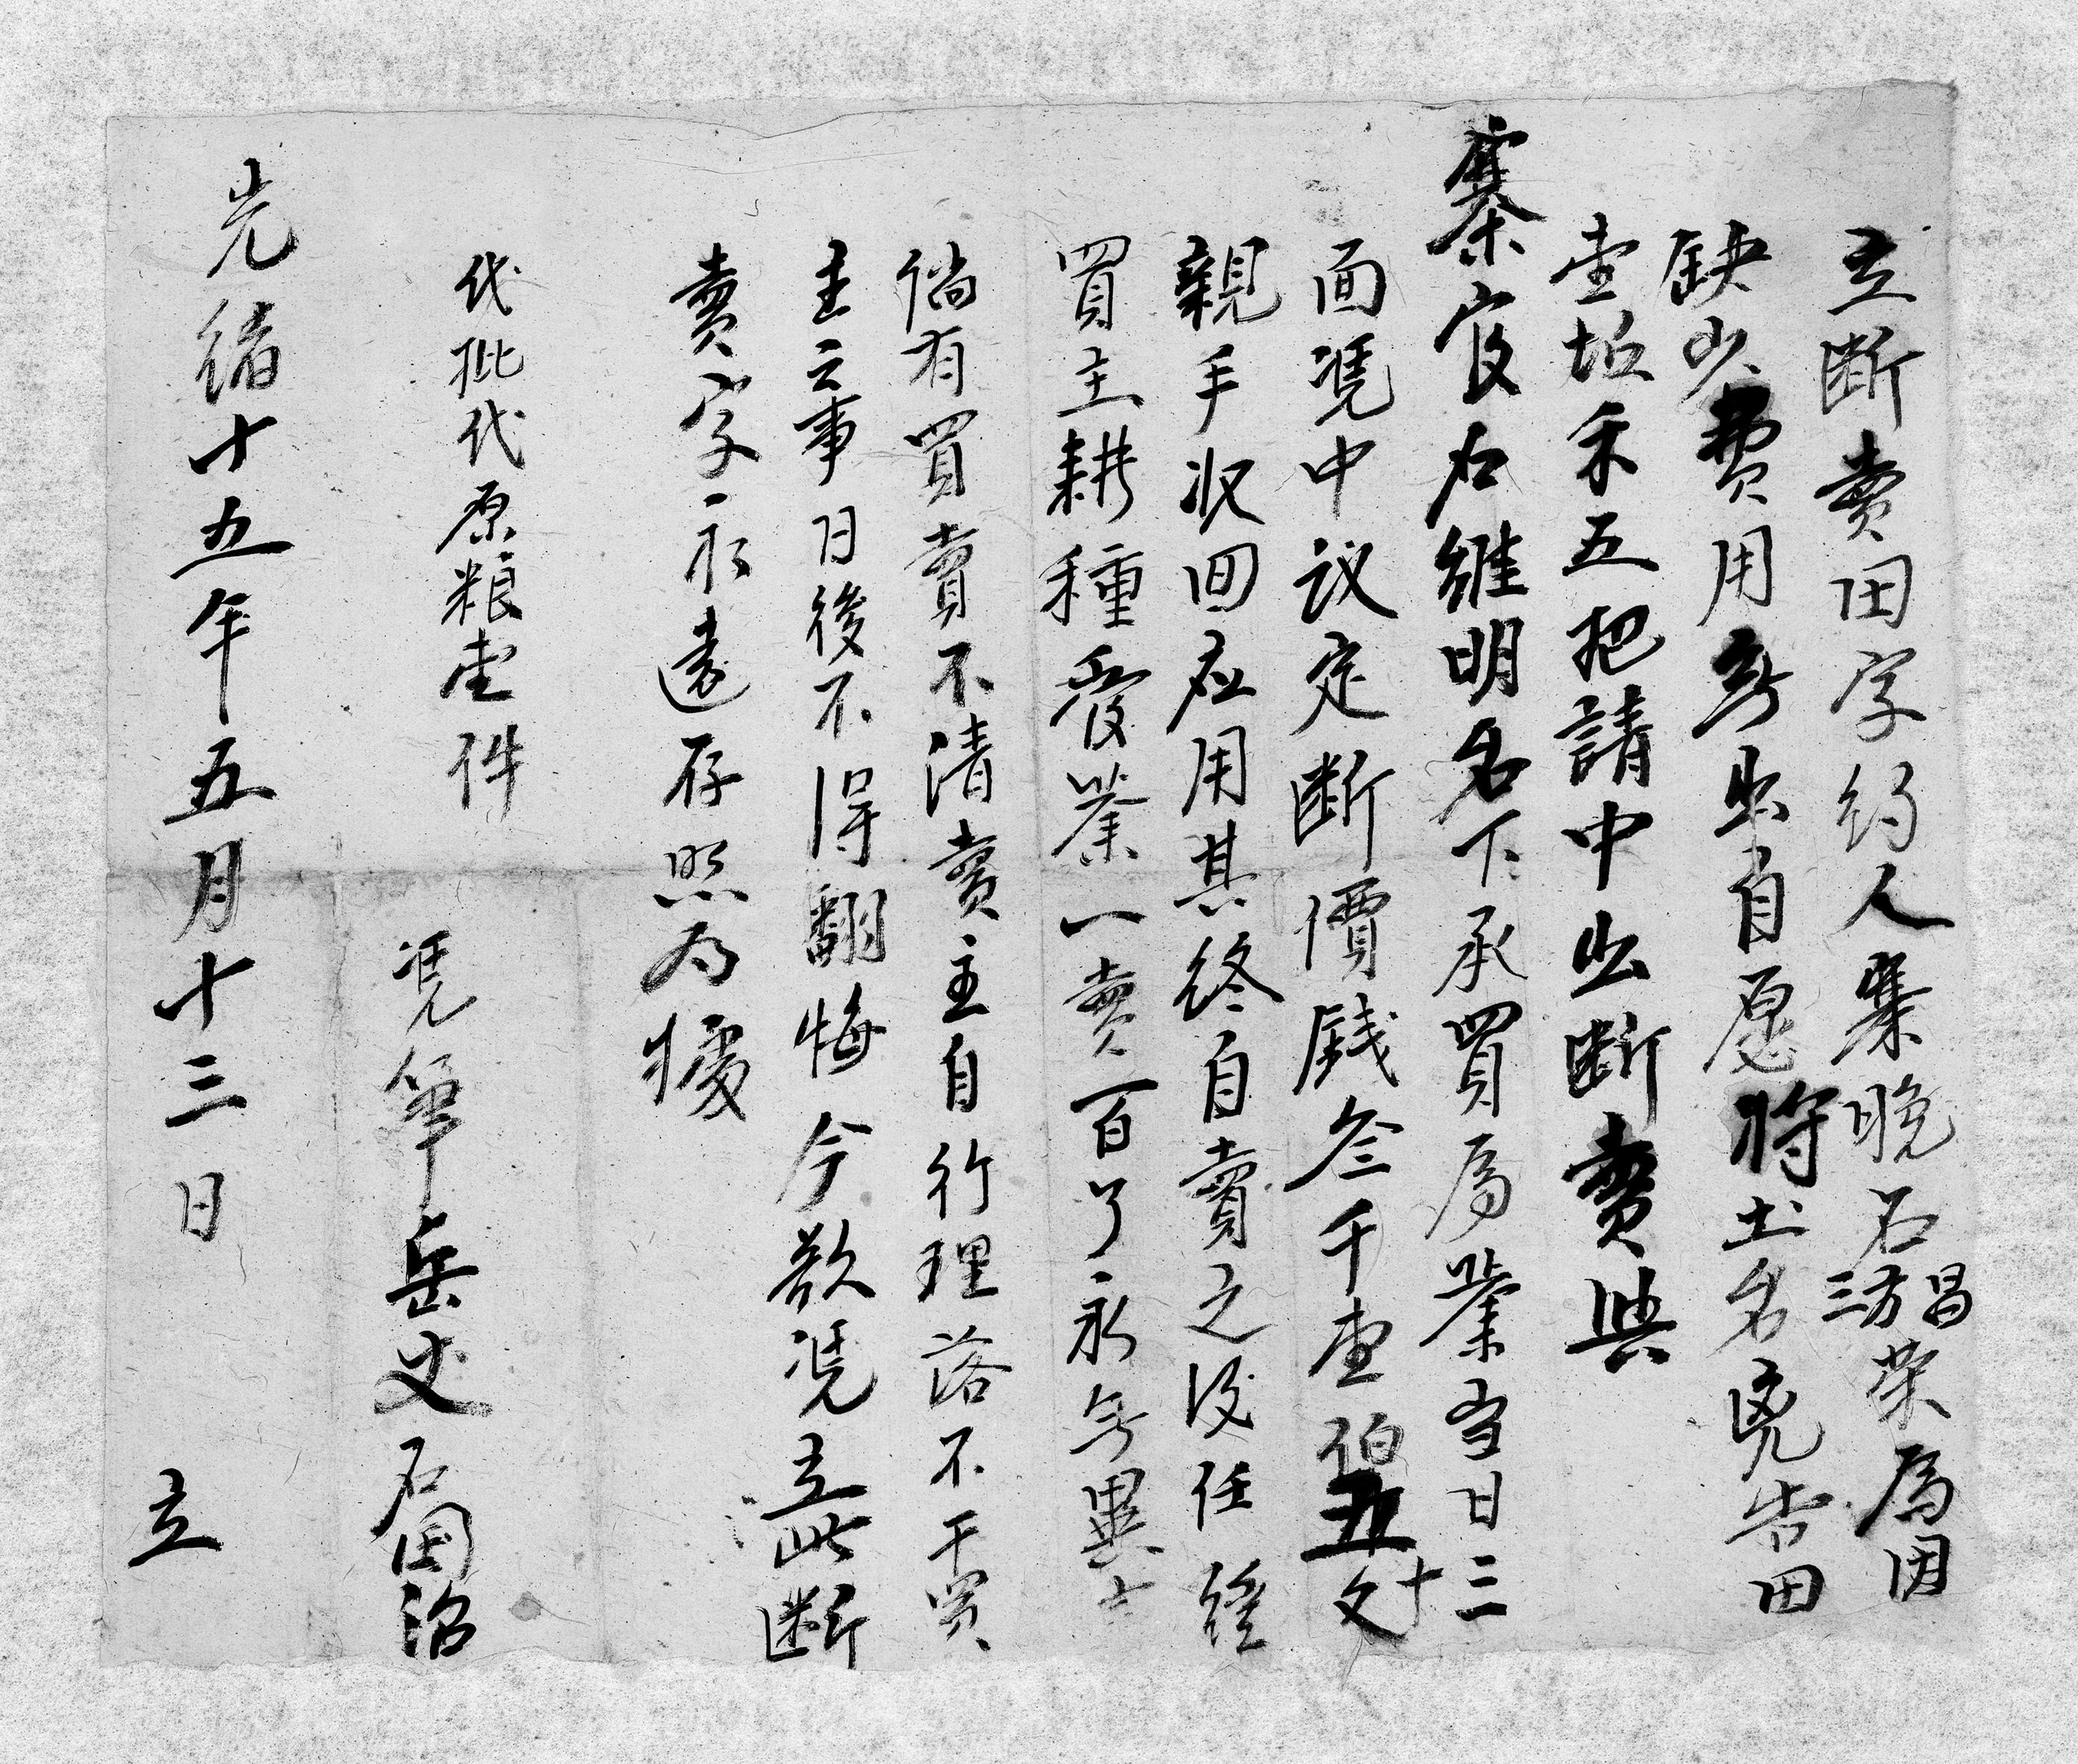 立断賣田字約人寨晚石三方昌荣為因
缺少費用無出自愿將土名凳告田
壹坵禾五把請中出断賣與
寨官石維明名下承買為業当日三
面凴中议定断價銭叁千壹伯五十文
親手收回应用其終自賣之後任從
買主耕種管業一賣百了永無異言
倘有買賣不清賣主自行理落不干買
主云事日後不得翻悔今欲凴立此断
賣字永遠存照為據
代批代原粮壹件
凴筆岳丈石国治
光绪十五年五月十三日 立